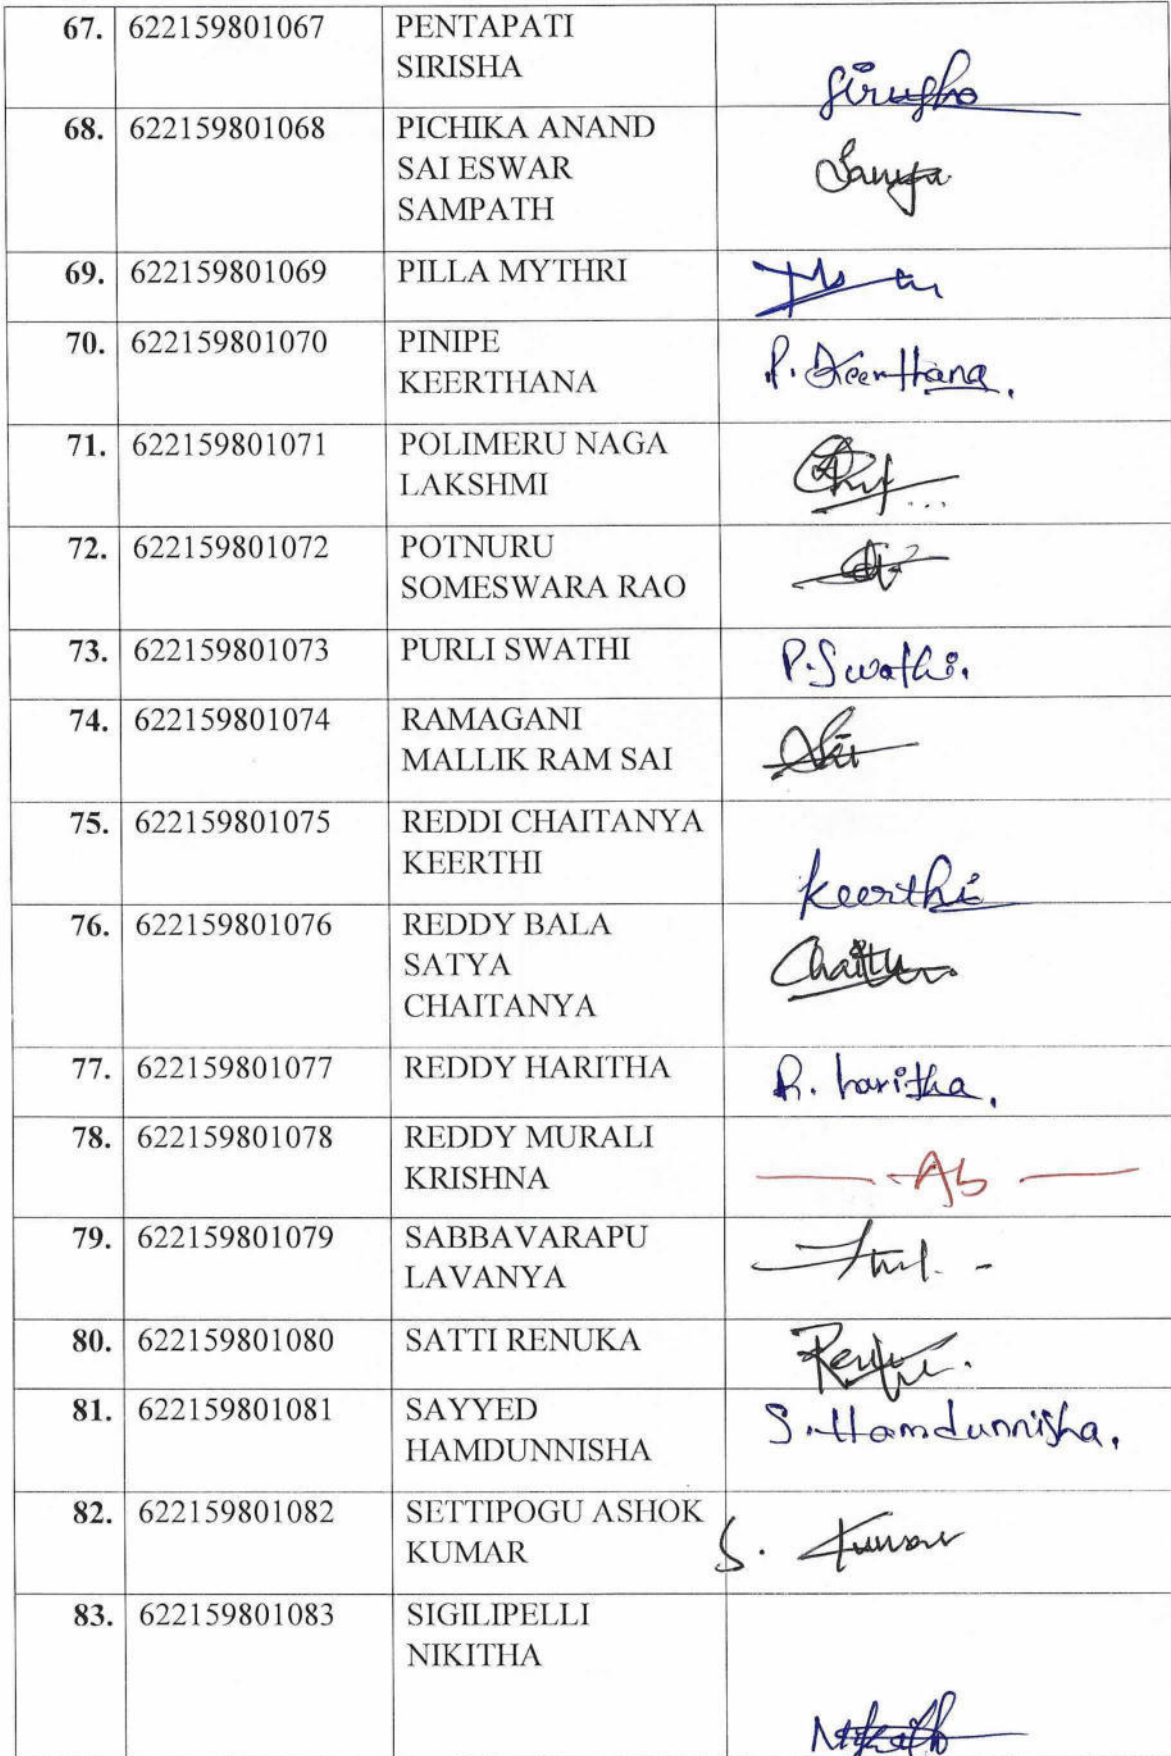 67. 622159801067 PENTAPATI
SIRISHA
68. 622159801068 PICHIKA ANAND
SAI ESWAR
SAMPATH
69. 622159801069 PILLA MYTHRI
70. 622159801070 PINIPE
KEERTHANA P. Keerthana.
71. 622159801071 POLIMERU NAGA
LAKSHMI
72. 622159801072 POTNURU
SOMESWARA RAO
73. 622159801073 PURLI SWATHI P. Swathi.
74. 622159801074 RAMAGANI
MALLIK RAM SAI
75. 622159801075 REDDI CHAITANYA
KEERTHI Keerthi
76. 622159801076 REDDY BALA
SATYA
CHAITANYA
77. 622159801077 REDDY HARITHA R. haritha.
78. 622159801078 REDDY MURALI
KRISHNA Ab
79. 622159801079 SABBAVARAPU
LAVANYA
80. 622159801080 SATTI RENUKA
81. 622159801081 SAYYED S. Hamdunnisha.
HAMDUNNISHA
82. 622159801082 SETTIPOGU ASHOK
KUMAR S. Kumar
83. 622159801083 SIGILIPELLI
NIKITHA